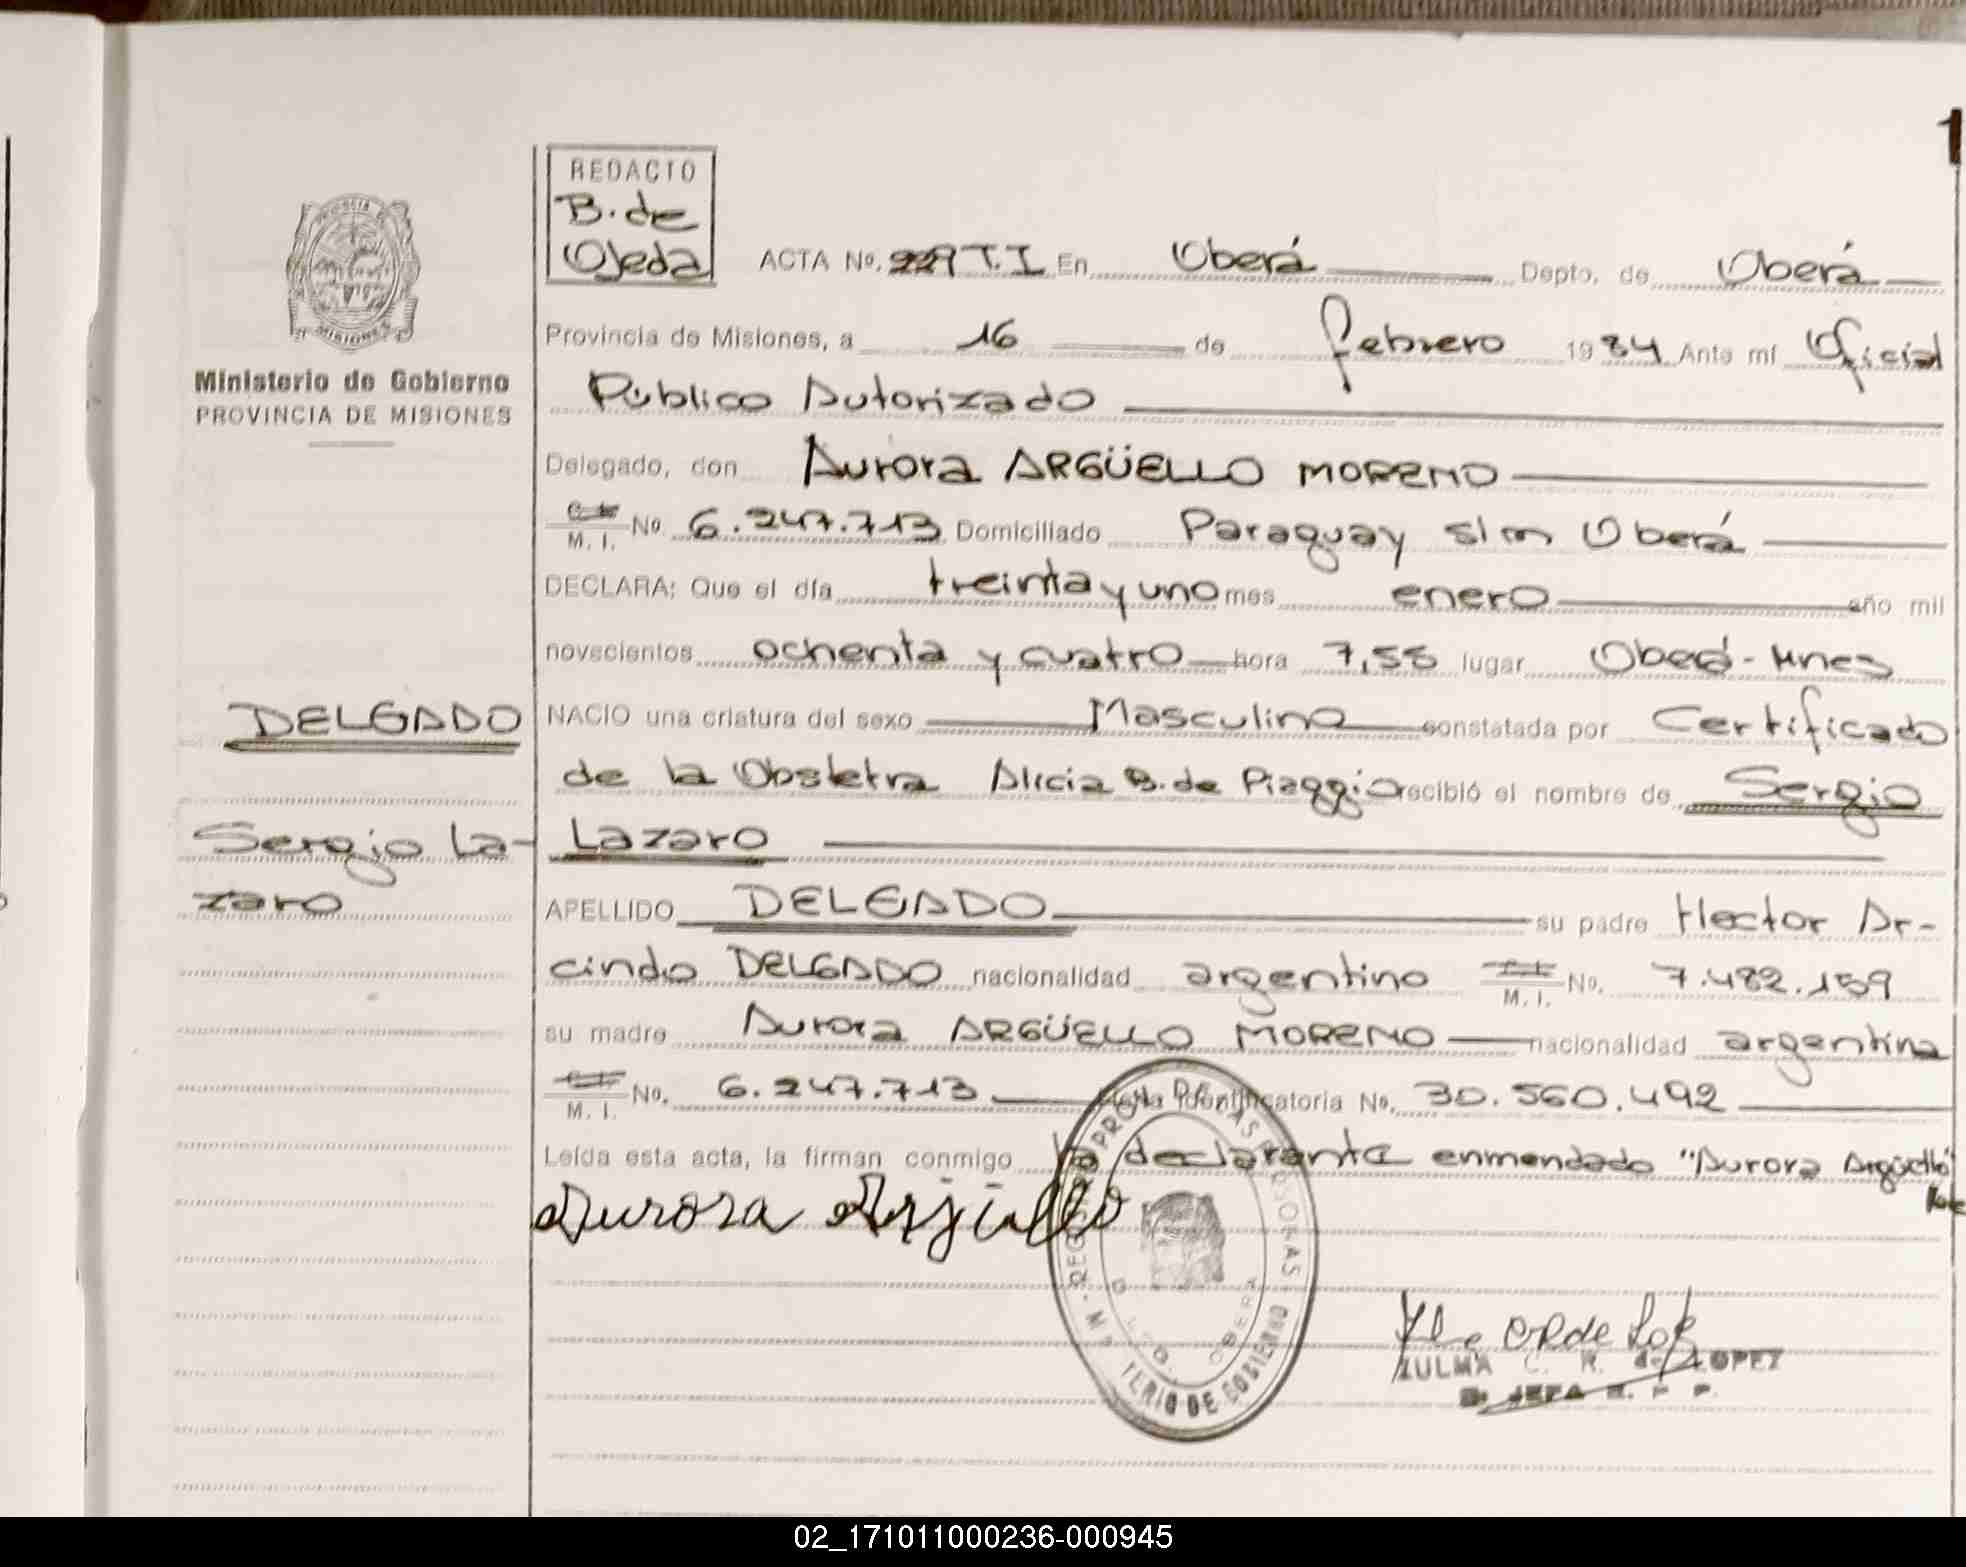 1
REDACTO
B. de
Ojeda
ACTA No. 229 T.I En Oberá Depto. de Oberá
Provincia de Misiones, a 16 de febrero 1984 Ante mí Oficial
Ministerio de Gobierno
PROVINCIA DE MISIONES
Público Autorizado
Delegado, don Aurora ARGÜELLO MORENO
M. I. No. 6.247.713 Domiciliado Paraguay s/n Oberá
DECLARA: Que el día treinta y uno mes enero año mil
novecientos ochenta y cuatro hora 7,55 lugar Oberá - Mnes
DELGADO
NACIO una criatura del sexo Masculino constatada por Certificado
de la Obstetra Alicia B. de Piaggio recibió el nombre de Sergio
Sergio La-
zaro
Lazaro
APELLIDO DELGADO su padre Hector Ar-
cindo DELGADO nacionalidad argentino M. I. No. 7.482.159
su madre Aurora ARGÜELLO MORENO nacionalidad argentina
M. I. No. 6.247.713 Identificatoria No. 30.560.492
Leída esta acta, la firman conmigo la declarante enmendado "Aurora Argüello"
Aurora Argüello
ZULMA C. R. de LOPEZ
JEFA
OBERA
TERIO DE GOBIERNO
02_171011000236-000945